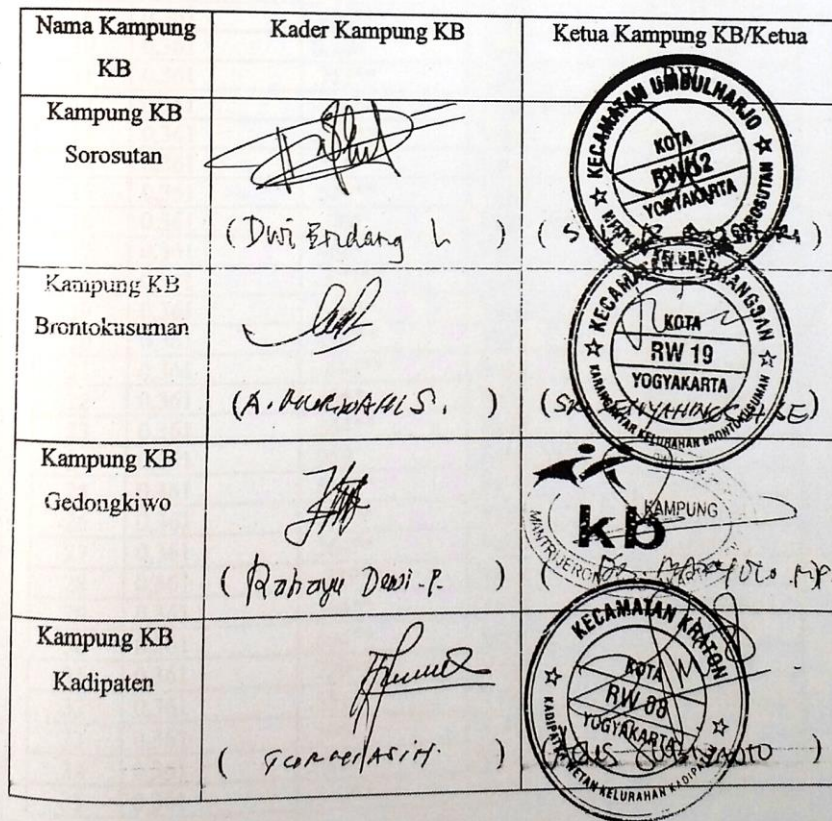 Nama Kampung KB
Kader Kampung KB
Ketua Kampung KB/Ketua RW
Kampung KB
Sorosutan
(Dwi Endang L )
KECAMATAN UMBULHARJO
KOTA
RW 02
YOGYAKARTA
SOROSUTAN
Kampung KB
Brontokusuman
(A. NURWAHI S. )
KECAMATAN MERGANGSAN
KOTA
RW 19
YOGYAKARTA
KARANGANYAR KELURAHAN BRONTOKUSUMAN
Kampung KB
Gedongkiwo
( Rahayu Dewi.P. )
KAMPUNG
kb
MANTRIJERON
Kampung KB
Kadipaten
KECAMATAN KRATON
KOTA
RW 08
YOGYAKARTA
KELURAHAN KADIPATEN
(AGUS )